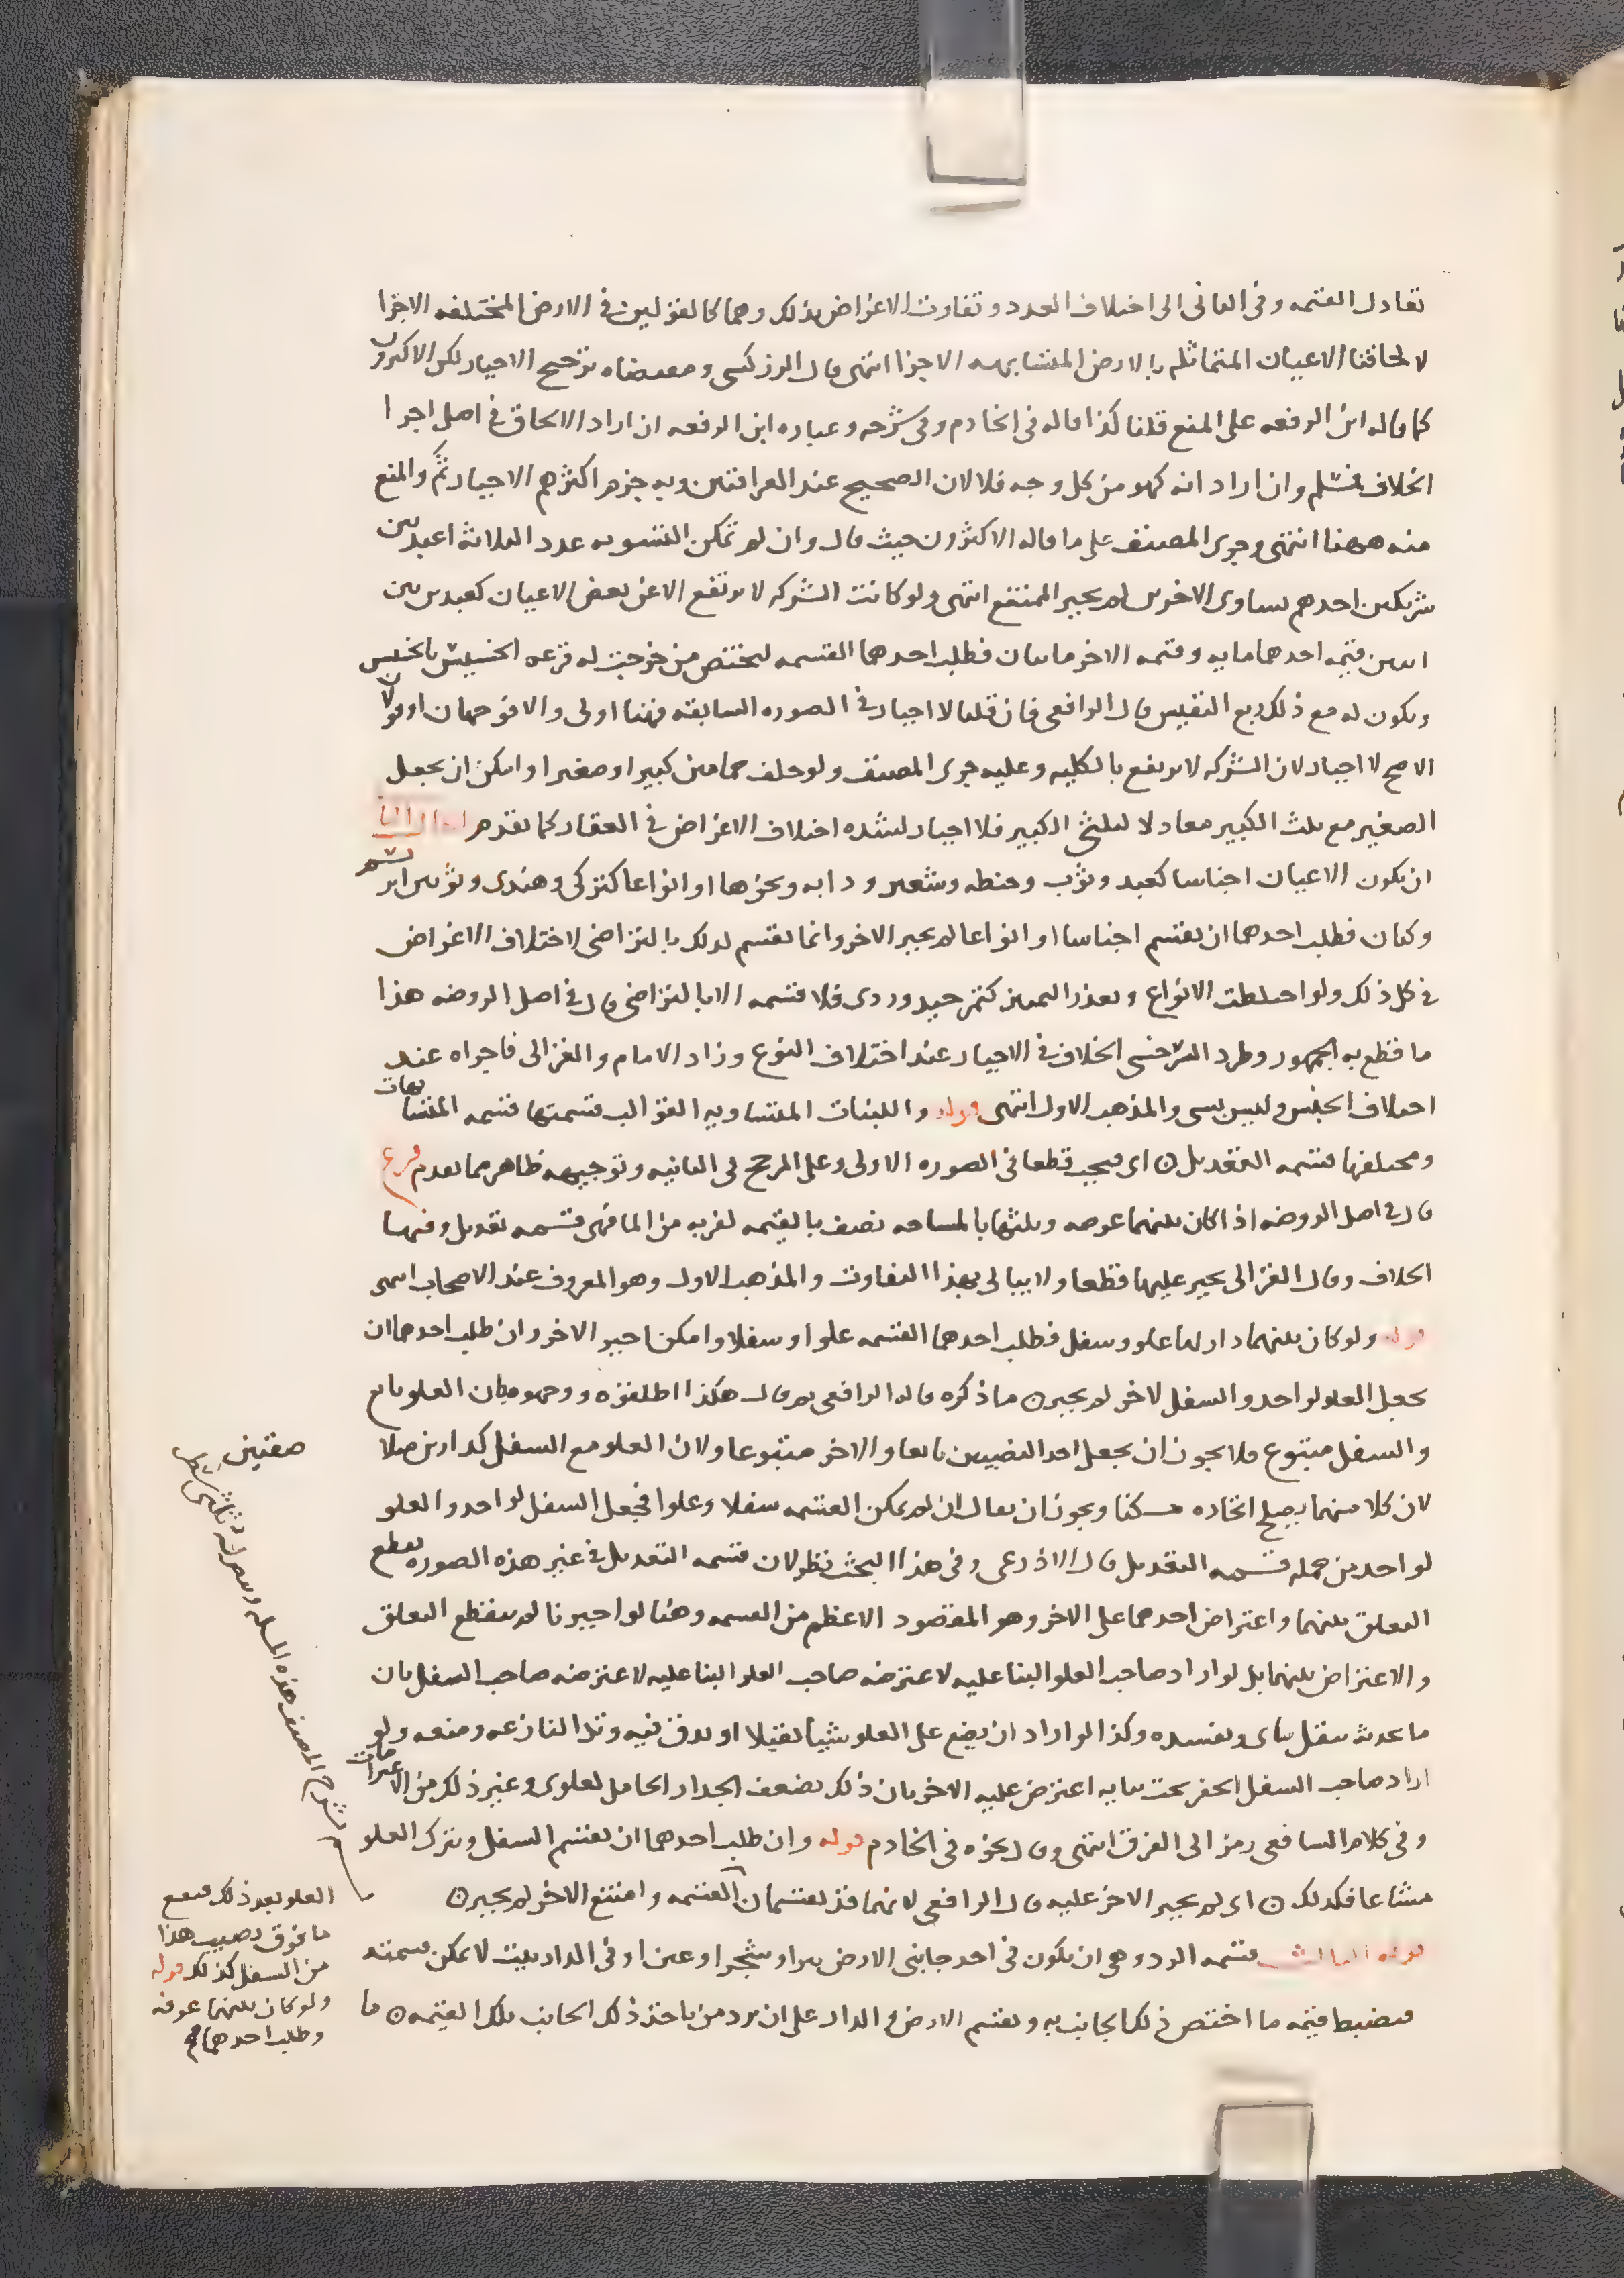 تعادل القسمه وفي الثاني الى اختلاف العدد وتفاوت الاغراض بذلك وهما كالقولين في الارض المختلفه الاجزا
لالحاقنا الاعيان المتماثله بالارض المتشابهه الاجزا انتهى قال الزركشي ومقتضاه ترجيح الاجبار لكن الاكثرون
كما قاله ابن الرفعه على المنع قلنا كذا قاله في الخادم وفي شرحه وعباره ابن الرفعه ان اراد الالحاق في اصل اجرا
الخلاف فمسلم وان اراد انه كهو من كل وجه فلا لان الصحيح عند العراقيين وبه جزم اكثرهم الاجبار ثم والمنع
منه ههنا انتهى وجرى المصنف على ما قاله الاكثرون حيث قال وان لم تمكن التسويه عدد الثلاثه اعبد بين
شريكين احدهم يساوي الاخرين لم يجبر الممتنع انتهى ولو كانت الشركه لا ترتفع الا عن بعض الاعيان كعبدين بين
اثنين قيمه احدهما مايه وقيمه الاخر مايتان فطلب احدهما القسمه ليختص من خرجت له قرعه الخسيس بالخسيس
ويكون له مع ذلك ربع النفيس قال الرافعي فان قلنا لا اجبار في الصوره السابقه فهنا اولى والا فوجهان او قولان
الاصح لا اجبار لان الشركه لا ترتفع بالكليه وعليه جرى المصنف ولو خلف حمامين كبيرا وصغيرا وامكن ان يجعل
الصغير مع ثلث الكبير معادلا لثلثي الكبير فلا اجبار لشده اختلاف الاغراض في العقار كما تقدم
ان يكون الاعيان اجناسا كعبد وثوب وحنطه وشعير ودابه ونحوها او انواعا كتركي وهندي وثوبين ابريسم
وكتان فطلب احدهما ان يقتسم اجناسا او انواعا لم يجبر الاخر وانما يقتسم لذلك بالتراضي لاختلاف الاغراض
في كل ذلك ولو اختلطت الانواع وتعذر التمييز كتمر جيد وردي فلا قسمه الا بالتراضي قال في اصل الروضه هذا
ما قطع به الجمهور وطرد السرخسي الخلاف في الاجبار عند اختلاف النوع وزاد الامام والغزالي فاجراه عند
اختلاف الجنس وليس بشي والمذهب الاول انتهى قوله واللبنات المتساويه القوالب قسمتها قسمه المتشابهات
ومختلفها قسمه التعديل ن اي فيجب قطعا في الصوره الاولى وعلى المرجح في الثانيه وتوجيهه ظاهر مما تقدم فرع
قال في اصل الروضه اذا كان بينهما عرصه وثلثها بالمساحه نصف بالقيمه لقربه من الما فهي قسمه تعديل وفيها
الخلاف وقال الغزالي يجبر عليها قطعا ولا يبالي بهذا التفاوت والمذهب الاول وهو المعروف عند الاصحاب انتهى
قوله ولو كان بينهما دار لها علو وسفل فطلب احدهما القسمه علوا وسفلا وامكن اجبر الاخر وان طلب احدهما ان
يجعل العلو لواحد والسفل لاخر لم يجبر ن ما ذكره قاله الرافعي ثم قال هكذا اطلقوه ووجهوه بان العلو تابع
والسفل متبوع فلا يجوز ان يجعل احد النصيبين تابعا والاخر متبوعا ولان العلو مع السفل كدارين
لان كلا منهما يصلح اتخاده مسكنا ويجوز ان يقال ان لم يمكن القسمه سفلا وعلوا فجعل السفل لواحد والعلو
لواحد من جمله قسمه التعديل قال الاذرعي وفي هذا البحث نظر لان قسمه التعديل في غير هذه الصوره تقطع
التعلق بينهما واعتراض احدهما على الاخر وهو المقصود الاعظم من القسمه وهنا لو اجبرنا لم ينقطع التعلق
والاعتراض بينهما بل لو اراد صاحب العلو البنا عليه لاعترضه صاحب العلو البنا عليه لاعترضه صاحب السفل بان
ما يحدث يثقل بناي ويفسده وكذا لو اراد ان يضع على العلو شيا ثقيلا او يدق فيه وتدا لنازعه ومنعه ولو
اراد صاحب السفل الحفر تحت بنايه اعترض عليه الاخر بان ذلك يضعف الجدار الحامل لعلوي وغير ذلك من الاعتراضات
وفي كلام الشافعي رمز الى الفرق انتهى وقال نحوه في الخادم قوله وان طلب احدهما ان يقتسم السفل ويترك العلو
مشاعا فكذلك ن اي لم يجبر الاخر عليه قال الرافعي لانهما قد يقتسمان القسمه وامتنع الاخر لم يجبر ن
قوله الثالث قسمه الرد وهي ان يكون في احد جانبي الارض بيرا وشجرا وعين او في الدار بيت لا تمكن قسمته
فيضبط قيمه ما اختص ذلك الجانب به ويقسم الارض والدار على ان يرد من ياخذ ذلك الجانب تلك القيمه ن ما
صفتين
العلو بعد ذلك فيقع
ما فوق نصيب هذا
من السفل كذلك قوله
ولو كان بينهما عرصه
وطلب احدهما